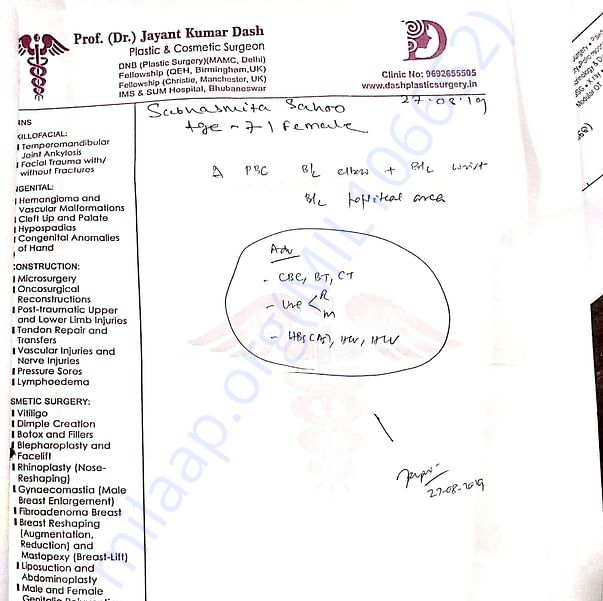 Prof. (Dr.) Jayant Kumar Dash
Plastic & Cosmetic Surgeon
DNB (Plastic Surgery)(MAMC, Delhi)
Fellowship (QEH, Birmingham,UK)
Fellowship (Christie, Manchester, UK)
IMS & SUM Hospital, Bhubaneswar
Clinic No: 9692655505
www.dashplasticsurgery.in
27·08·19
Subhasmita Sahoo
Age ~ 7 / Female
Δ PBC B/L elbow + B/L wrist
B/L popliteal area
Adv
- CBC, BT, CT
- Urine < R
M
- HBS(AS), HCV, HIV
27-08-2019
RNS
XILLOFACIAL:
Temporomandibular
Joint Ankylosis
Facial Trauma with/
without Fractures
NGENITAL:
Hemangioma and
Vascular Malformations
Cleft Lip and Palate
Hypospadias
Congenital Anomalies
of Hand
CONSTRUCTION:
Microsurgery
Oncosurgical
Reconstructions
Post-traumatic Upper
and Lower Limb Injuries
Tendon Repair and
Transfers
Vascular Injuries and
Nerve Injuries
Pressure Sores
Lymphoedema
SMETIC SURGERY:
Vitiligo
Dimple Creation
Botox and Fillers
Blepharoplasty and
Facelift
Rhinoplasty (Nose-
Reshaping)
Gynaecomastia (Male
Breast Enlargement)
Fibroadenoma Breast
Breast Reshaping
(Augmentation,
Reduction) and
Mastopexy (Breast-Lift)
Liposuction and
Abdominoplasty
Male and Female
milaap.org(MIL106662)